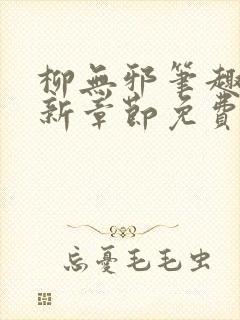 柳無邪筆趣
新章節免費
忘憂毛毛虫